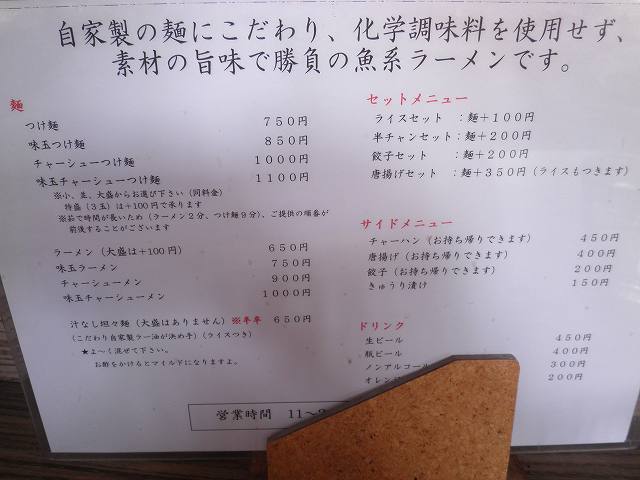 自家製の麺にこだわり、化学調味料を使用せず、
素材の旨味で勝負の魚系ラーメンです。
麺
つけ麺 750円
味玉つけ麺 850円
チャーシューつけ麺 1000円
味玉チャーシューつけ麺 1100円
※小、並、大盛からお選び下さい(同料金)
特盛(3玉)は+100円で承ります
※茹で時間が長いため(ラーメン2分、つけ麺9分)、ご提供の順番が
前後することがございます
ラーメン(大盛は+100円) 650円
味玉ラーメン 750円
チャーシューメン 900円
味玉チャーシューメン 1000円
汁なし坦々麺(大盛はありません)※辛辛 650円
(こだわり自家製ラー油が決め手)(ライスつき)
★よ~く混ぜて下さい。
お酢をかけるとマイルドになりますよ。
営業時間 11~
セットメニュー
ライスセット :麺+100円
半チャンセット:麺+200円
餃子セット :麺+200円
唐揚げセット :麺+350円(ライスもつきます)
サイドメニュー
チャーハン(お持ち帰りできます) 450円
唐揚げ(お持ち帰りできます) 400円
餃子(お持ち帰りできます) 200円
きゅうり漬け 150円
ドリンク
生ビール 450円
瓶ビール 400円
ノンアルコール 300円
オレン 200円